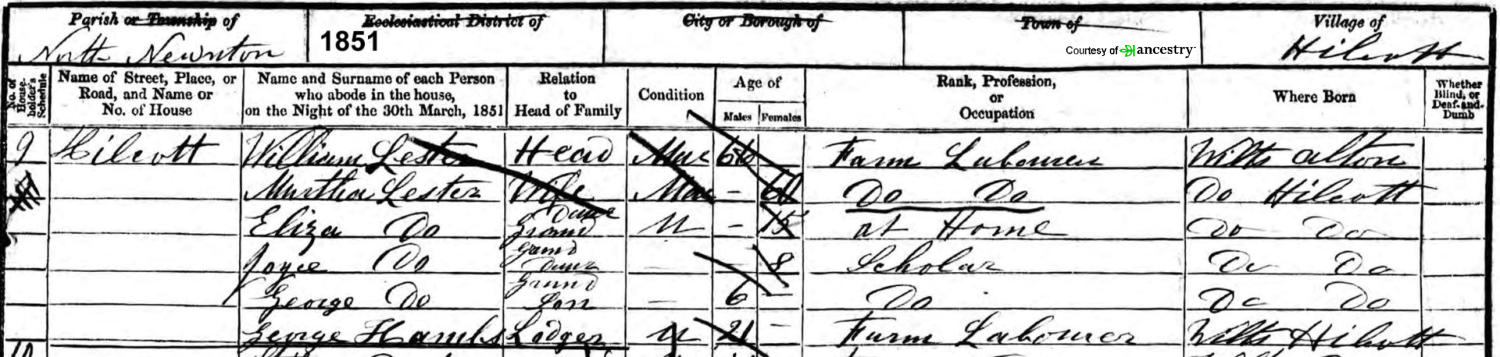 Parish or Township of
Ecclesiastical District of
City or Borough of
Town of
Village of
North Newnton
1851
Courtesy of ancestry
Hilcott
No. of House-holder's Schedule
Name of Street, Place, or Road, and Name or No. of House
Name and Surname of each Person who abode in the house, on the Night of the 30th March, 1851
Relation to Head of Family
Condition
Age of
Males Females
Rank, Profession, or Occupation
Where Born
Whether Blind, or Deaf-and-Dumb
9 Hilcott William Lester Head Mar 66 Farm Labourer Wilts Alton
Martha Lester Wife Mar – Do Do Do Hilcott
Eliza Do Grand Daur U – 15 at Home Do Do
Joyce Do Grand Daur — 8 Scholar Do Do
George Do Grand Son — 6 – Do Do Do
10 George Hambs Lodger U 21 – Farm Labourer Wilts Hilcott